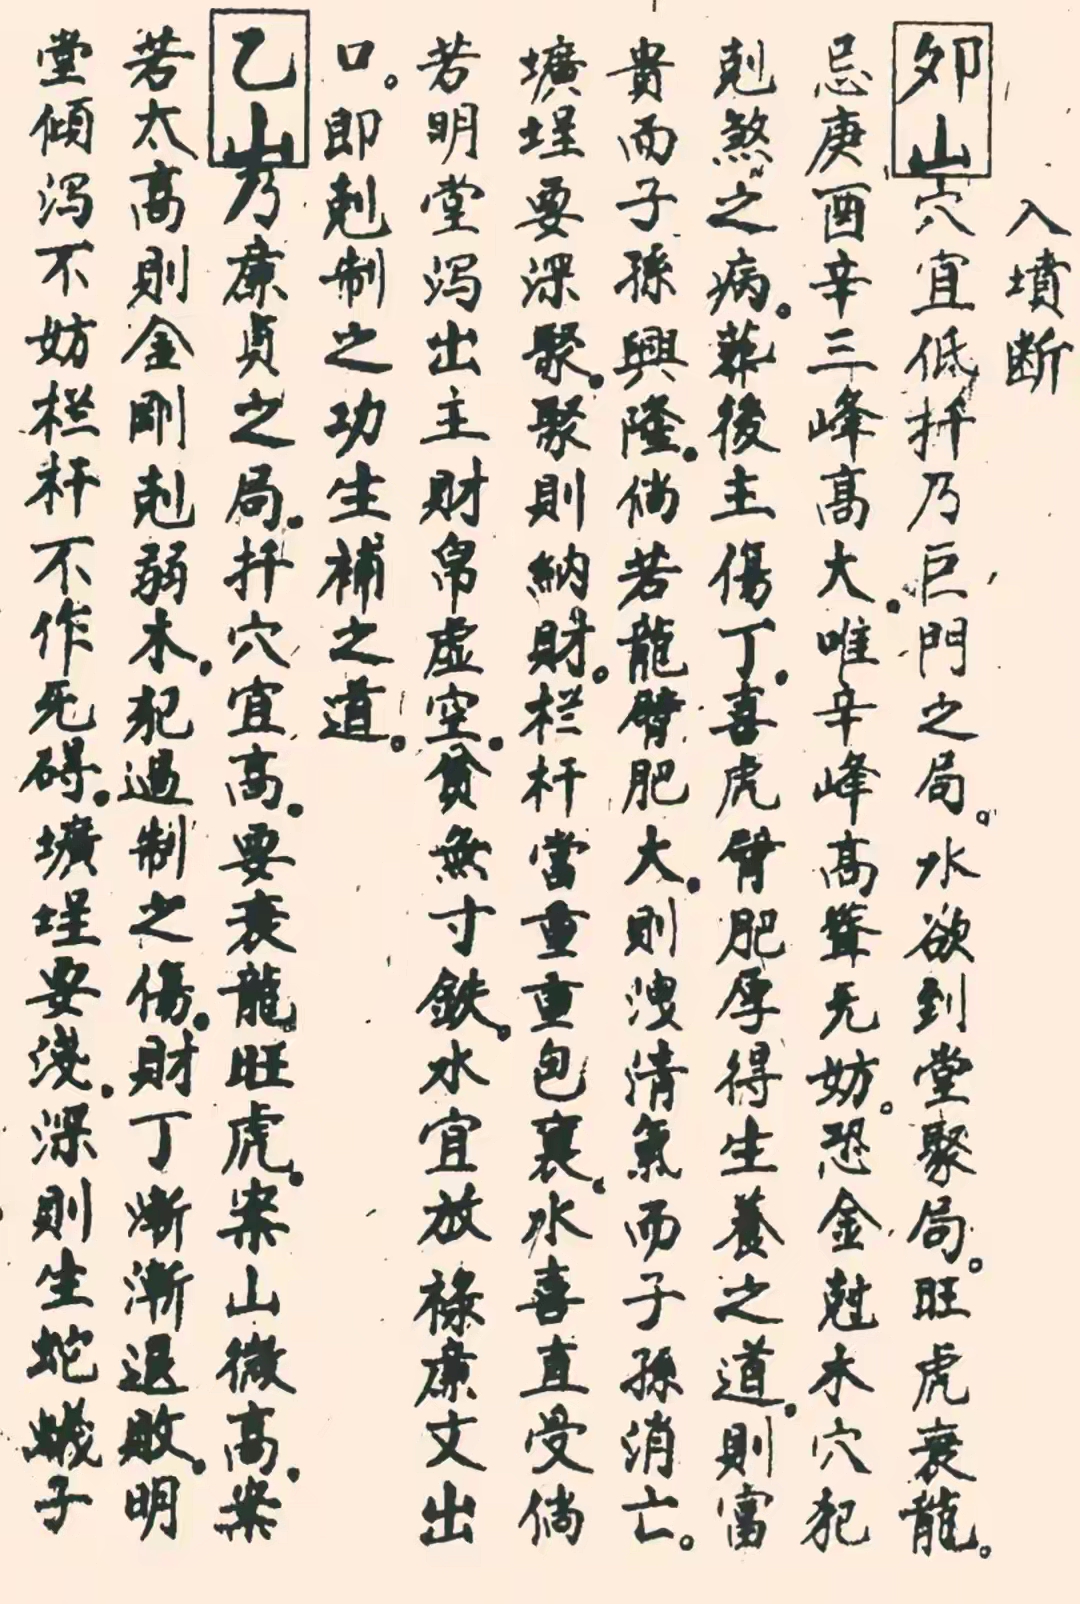 入墳断
夘山穴宜低扦乃巨門之局。水欲到堂聚局。旺虎衰龍。
忌庚酉辛三峰高大。唯辛峰高聳无妨。恐金尅木穴犯
剋煞之病。葬後主傷丁。喜虎臂肥厚得生養之道。則富
貴而子孫興隆。倘若龍臂肥大。則洩清氣而子孫消亡。
壙埕要深聚。聚則納財。栏杆當重重包裹。水喜直受倘
若明堂泻出主財帛虛空。貧無寸鉄。水宜放祿廉文出
口。即剋制之功生補之道。
乙山乃廉貞之局。扦穴宜高。要衰龍旺虎。案山微高。案
若太高則金剛剋弱木。犯過制之傷。財丁漸漸退敗。明
堂傾泻不妨栏杆不作死碍。壙埕要浅。深則生蛇蟻子